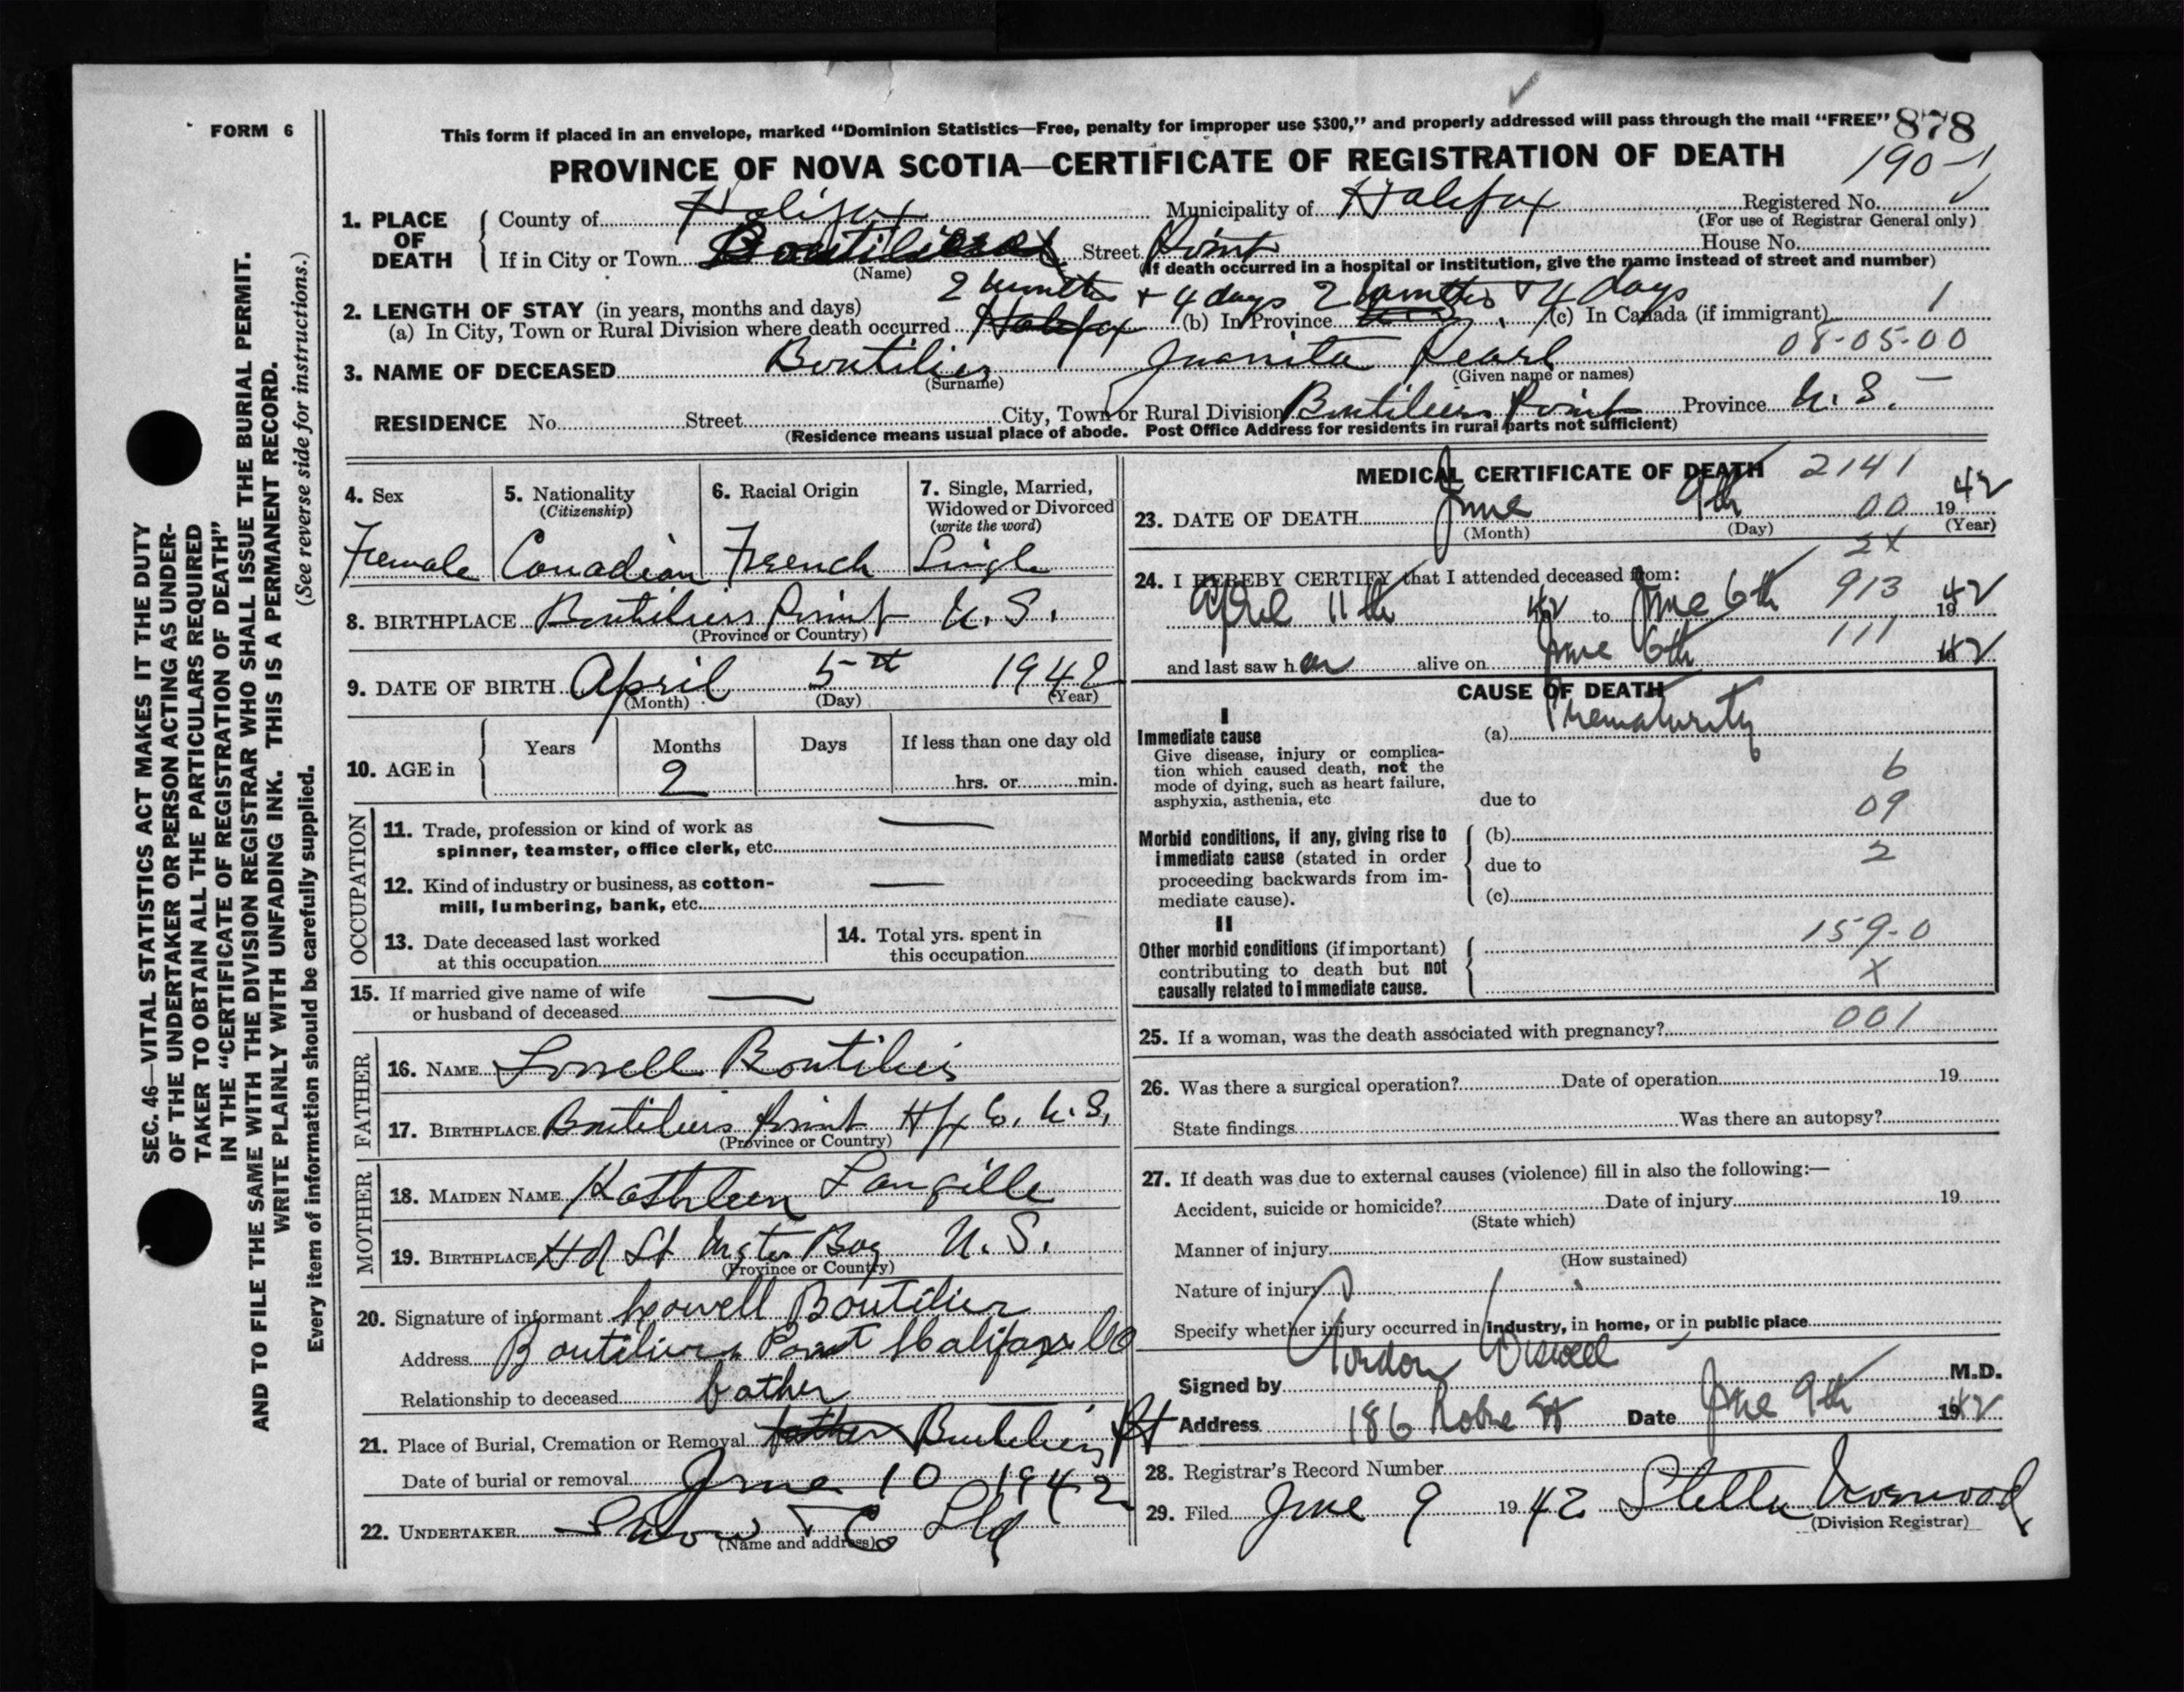 FORM 6
This form if placed in an envelope, marked "Dominion Statistics—Free, penalty for improper use $300," and properly addressed will pass through the mail "FREE" 878
PROVINCE OF NOVA SCOTIA—CERTIFICATE OF REGISTRATION OF DEATH
190-1
1. PLACE OF DEATH
County of Halifax Municipality of Halifax Registered No.
(For use of Registrar General only)
If in City or Town Boutiliers Street Point House No.
(Name) (If death occurred in a hospital or institution, give the name instead of street and number)
2 months + 4 days 2 months + 4 days
2. LENGTH OF STAY (in years, months and days)
(a) In City, Town or Rural Division where death occurred Halifax (b) In Province N.S. (c) In Canada (if immigrant) 1
08-05-00
3. NAME OF DECEASED Boutilier Juanita Pearl
(Surname) (Given name or names)
RESIDENCE No. Street City, Town or Rural Division Boutiliers Point Province N.S. –
(Residence means usual place of abode. Post Office Address for residents in rural parts not sufficient)
4. Sex
Female
5. Nationality
(Citizenship)
Canadian
6. Racial Origin
French
7. Single, Married,
Widowed or Divorced
(write the word)
Single
8. BIRTHPLACE Boutiliers Point N.S.
(Province or Country)
9. DATE OF BIRTH April 5th 1942
(Month) (Day) (Year)
10. AGE in
Years Months Days If less than one day old
2 hrs. or min.
OCCUPATION
11. Trade, profession or kind of work as
spinner, teamster, office clerk, etc. —
12. Kind of industry or business, as cotton-
mill, lumbering, bank, etc. —
13. Date deceased last worked
at this occupation
14. Total yrs. spent in
this occupation
15. If married give name of wife
or husband of deceased —
FATHER
16. NAME Lowell Boutilier
17. BIRTHPLACE Boutiliers Point Hfx Co. N.S.
(Province or Country)
MOTHER
18. MAIDEN NAME Kathleen Langille
19. BIRTHPLACE Hd St Mgts Bay N.S.
(Province or Country)
20. Signature of informant Lowell Boutilier
Address Boutiliers Point Halifax Co
Relationship to deceased father
21. Place of Burial, Cremation or Removal father Boutiliers Pt
Date of burial or removal June 10 1942
22. UNDERTAKER Snow & Co Ltd
(Name and address)
MEDICAL CERTIFICATE OF DEATH 2141
23. DATE OF DEATH June 9th 00 1942
(Month) (Day) (Year)
2X
24. I HEREBY CERTIFY that I attended deceased from:
April 11th 42 to June 6th 913 1942
111
and last saw her alive on June 6th 1942
CAUSE OF DEATH
I
Immediate cause
Give disease, injury or complica-
tion which caused death, not the
mode of dying, such as heart failure,
asphyxia, asthenia, etc
(a) Prematurity
6
due to 09
Morbid conditions, if any, giving rise to
immediate cause (stated in order
proceeding backwards from im-
mediate cause).
(b)
due to 2
(c)
II
Other morbid conditions (if important)
contributing to death but not
causally related to immediate cause.
159-0
X
25. If a woman, was the death associated with pregnancy? 001
26. Was there a surgical operation? Date of operation 19
State findings Was there an autopsy?
27. If death was due to external causes (violence) fill in also the following:—
Accident, suicide or homicide? Date of injury 19
(State which)
Manner of injury
(How sustained)
Nature of injury
Specify whether injury occurred in industry, in home, or in public place
Signed by Gordon Wiswell M.D.
Address 186 Robie St Date June 9th 1942
28. Registrar's Record Number
29. Filed June 9 1942 Stella
(Division Registrar)
SEC. 46—VITAL STATISTICS ACT MAKES IT THE DUTY
OF THE UNDERTAKER OR PERSON ACTING AS UNDER-
TAKER TO OBTAIN ALL THE PARTICULARS REQUIRED
IN THE "CERTIFICATE OF REGISTRATION OF DEATH"
AND TO FILE THE SAME WITH THE DIVISION REGISTRAR WHO SHALL ISSUE THE BURIAL PERMIT.
WRITE PLAINLY WITH UNFADING INK. THIS IS A PERMANENT RECORD.
Every item of information should be carefully supplied. (See reverse side for instructions.)